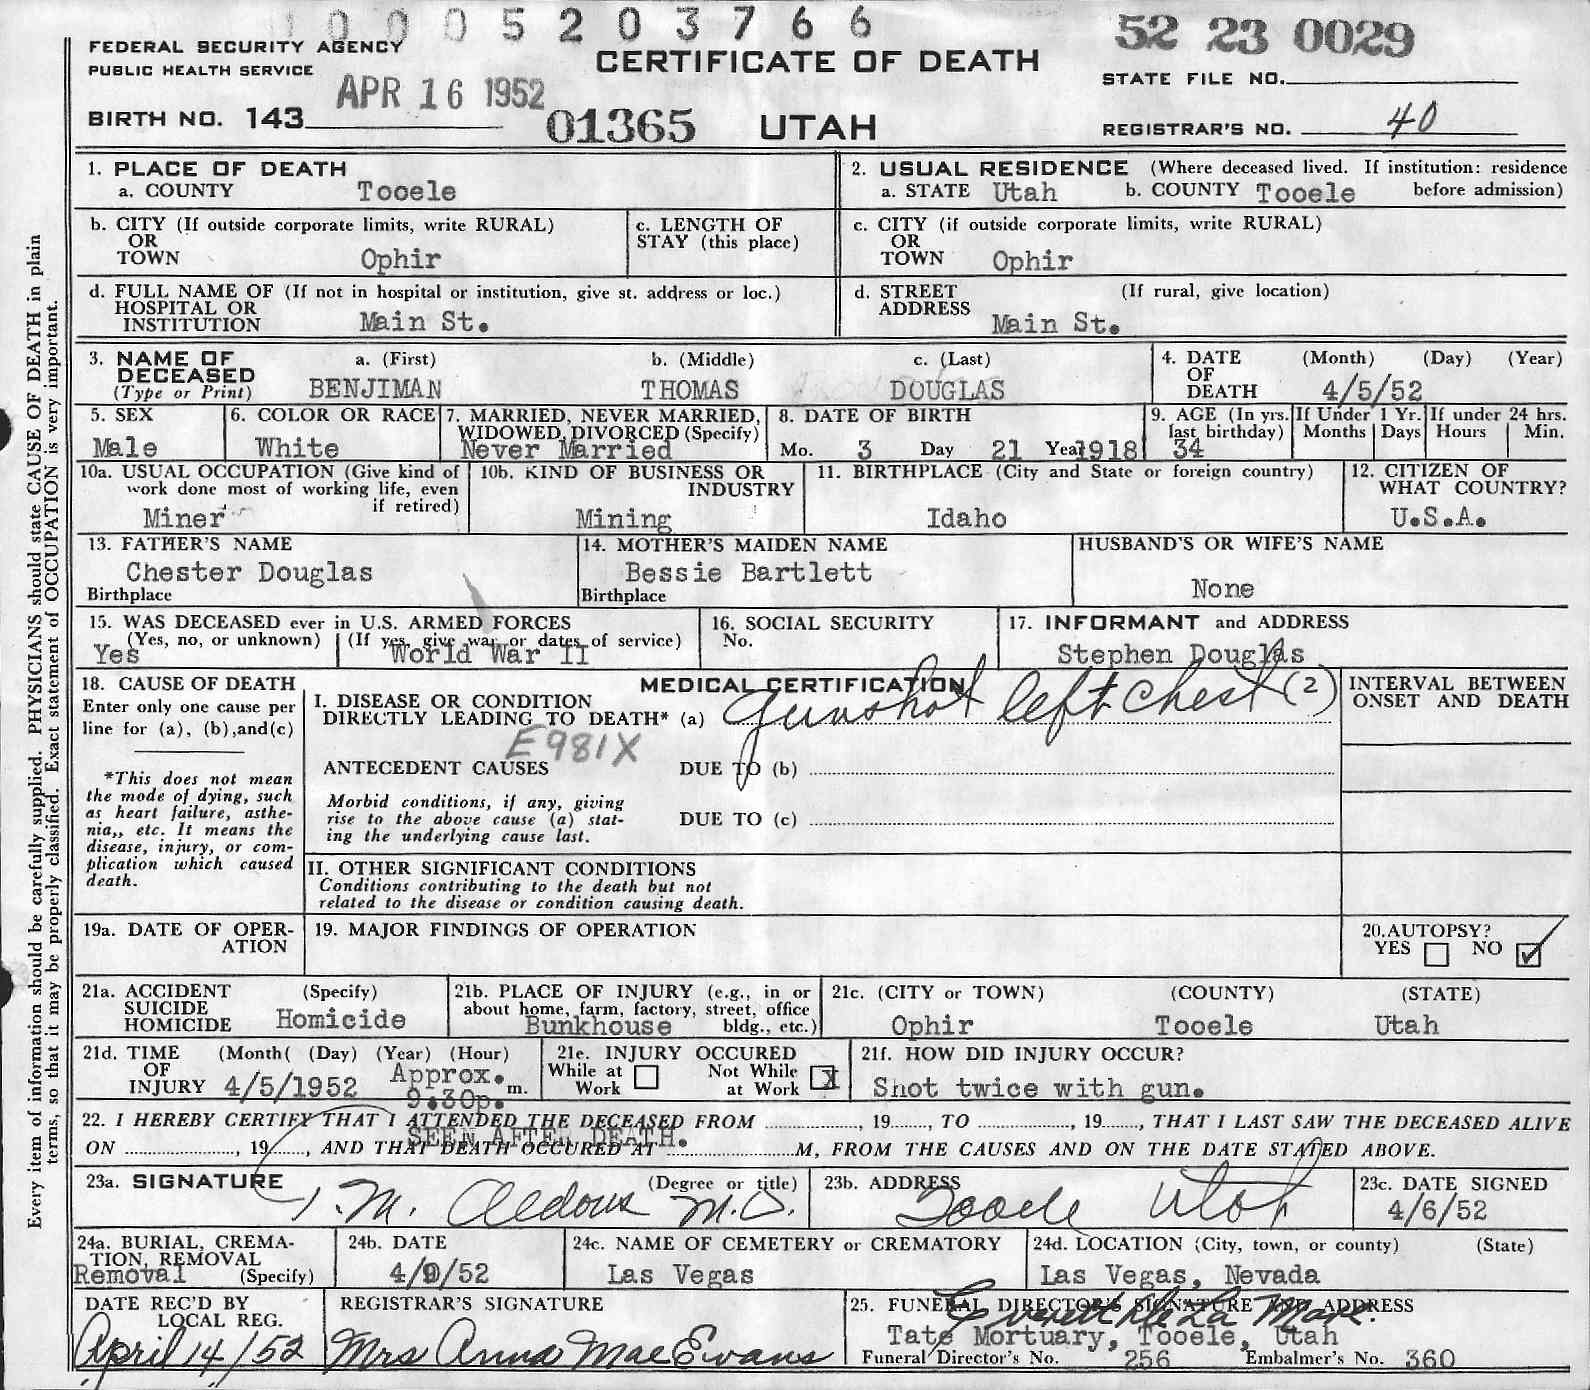 1 0 0 0 5 2 0 3 7 6 6
52 23 0029
FEDERAL SECURITY AGENCY
PUBLIC HEALTH SERVICE
CERTIFICATE OF DEATH
STATE FILE NO.
APR 16 1952
BIRTH NO. 143
01365 UTAH
REGISTRAR'S NO. 40
1. PLACE OF DEATH
a. COUNTY Tooele
2. USUAL RESIDENCE (Where deceased lived. If institution: residence
a. STATE Utah b. COUNTY Tooele before admission)
b. CITY (If outside corporate limits, write RURAL)
OR
TOWN Ophir
c. LENGTH OF
STAY (this place)
c. CITY (if outside corporate limits, write RURAL)
OR
TOWN Ophir
d. FULL NAME OF (If not in hospital or institution, give st. address or loc.)
HOSPITAL OR
INSTITUTION Main St.
d. STREET (If rural, give location)
ADDRESS Main St.
3. NAME OF a. (First) b. (Middle) c. (Last)
DECEASED
(Type or Print) BENJIMAN THOMAS DOUGLAS
4. DATE (Month) (Day) (Year)
OF
DEATH 4/5/52
5. SEX
Male
6. COLOR OR RACE
White
7. MARRIED, NEVER MARRIED,
WIDOWED, DIVORCED (Specify)
Never Married
8. DATE OF BIRTH
Mo. 3 Day 21 Year 1918
9. AGE (In yrs.
last birthday)
34
If Under 1 Yr.
Months Days
If under 24 hrs.
Hours Min.
10a. USUAL OCCUPATION (Give kind of
work done most of working life, even
if retired)
Miner
10b. KIND OF BUSINESS OR
INDUSTRY
Mining
11. BIRTHPLACE (City and State or foreign country)
Idaho
12. CITIZEN OF
WHAT COUNTRY?
U.S.A.
13. FATHER'S NAME
Chester Douglas
Birthplace
14. MOTHER'S MAIDEN NAME
Bessie Bartlett
Birthplace
HUSBAND'S OR WIFE'S NAME
None
15. WAS DECEASED ever in U.S. ARMED FORCES
(Yes, no, or unknown) (If yes, give war or dates of service)
Yes World War II
16. SOCIAL SECURITY
No.
17. INFORMANT and ADDRESS
Stephen Douglas
18. CAUSE OF DEATH
Enter only one cause per
line for (a), (b), and (c)
*This does not mean
the mode of dying, such
as heart failure, asthe-
nia,, etc. It means the
disease, injury, or com-
plication which caused
death.
MEDICAL CERTIFICATION
I. DISEASE OR CONDITION
DIRECTLY LEADING TO DEATH* (a) Gunshot left chest (2)
E981X
ANTECEDENT CAUSES DUE TO (b)
Morbid conditions, if any, giving
rise to the above cause (a) stat-
ing the underlying cause last.
DUE TO (c)
II. OTHER SIGNIFICANT CONDITIONS
Conditions contributing to the death but not
related to the disease or condition causing death.
INTERVAL BETWEEN
ONSET AND DEATH
19a. DATE OF OPER-
ATION
19. MAJOR FINDINGS OF OPERATION
20. AUTOPSY?
YES NO
21a. ACCIDENT (Specify)
SUICIDE
HOMICIDE Homicide
21b. PLACE OF INJURY (e.g., in or
about home, farm, factory, street, office
bldg., etc.)
Bunkhouse
21c. (CITY or TOWN) (COUNTY) (STATE)
Ophir Tooele Utah
21d. TIME (Month( (Day) (Year) (Hour)
OF
INJURY 4/5/1952 Approx. m.
9:30p.
21e. INJURY OCCURED
While at Work
Not While at Work X
21f. HOW DID INJURY OCCUR?
Shot twice with gun.
22. I HEREBY CERTIFY THAT I ATTENDED THE DECEASED FROM , 19 , TO , 19 , THAT I LAST SAW THE DECEASED ALIVE
SEEN AFTER DEATH.
ON , 19 , AND THAT DEATH OCCURED AT M, FROM THE CAUSES AND ON THE DATE STATED ABOVE.
23a. SIGNATURE (Degree or title)
J. M. Aldous M.D.
23b. ADDRESS
Tooele Utah
23c. DATE SIGNED
4/6/52
24a. BURIAL, CREMA-
TION, REMOVAL
Removal (Specify)
24b. DATE
4/9/52
24c. NAME OF CEMETERY or CREMATORY
Las Vegas
24d. LOCATION (City, town, or county) (State)
Las Vegas, Nevada
DATE REC'D BY
LOCAL REG.
April 14/52
REGISTRAR'S SIGNATURE
Mrs Anna Mae Evans
25. FUNERAL DIRECTOR'S SIGNATURE AND ADDRESS
Everett De La Mare.
Tate Mortuary, Tooele, Utah
Funeral Director's No. 256 Embalmer's No. 360
Every item of information should be carefully supplied. PHYSICIANS should state CAUSE OF DEATH in plain
terms, so that it may be properly classified. Exact statement of OCCUPATION is very important.